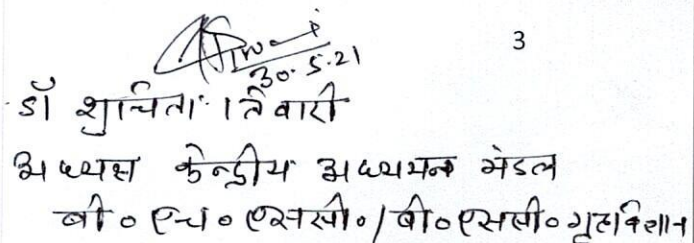 3
30.5.21
डॉ शुचिता तिवारी
अध्यक्ष केन्द्रीय अध्ययन मंडल
बी० एच० एससी० / बी० एससी० गृहविज्ञान